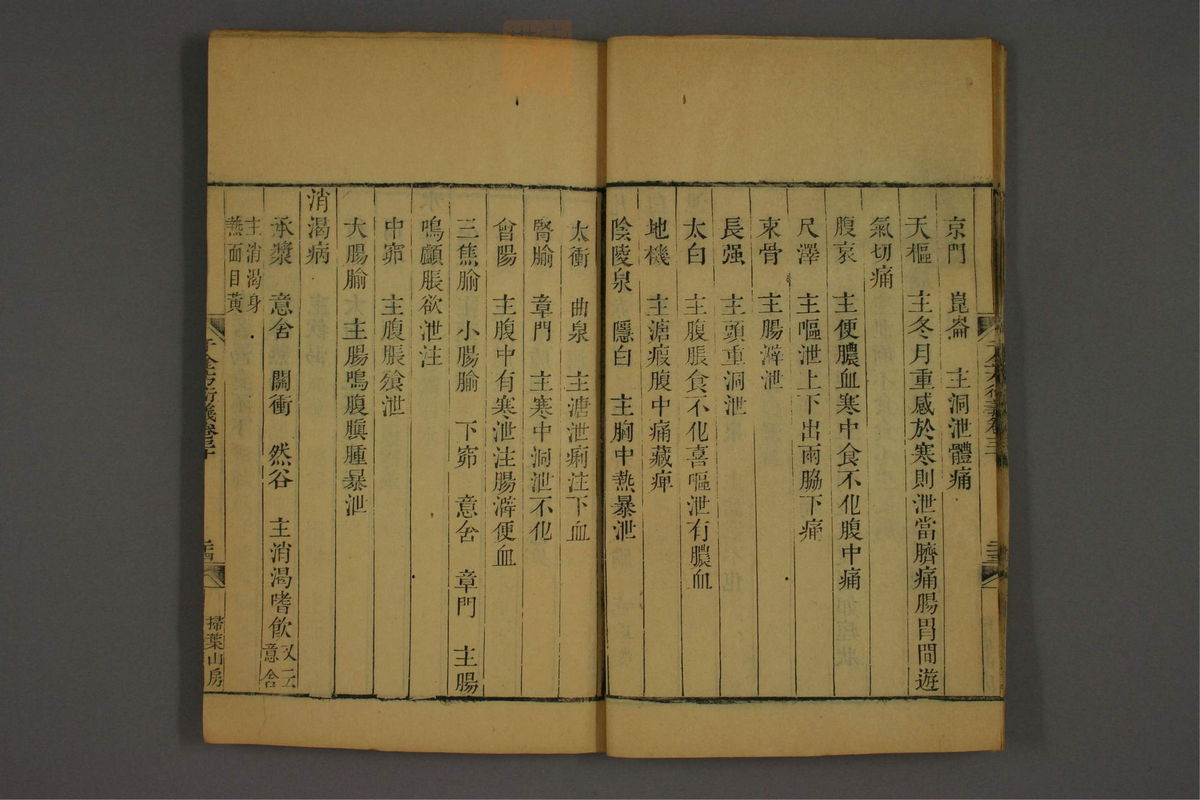 京門　崑崙　主洞泄體痛
天樞　主冬月重感於寒則泄當臍痛腸胃間遊
氣切痛
腹哀　主便膿血寒中食不化腹中痛
尺澤　主嘔泄上下出兩脇下痛
束骨　主腸澼泄
長强　主頭重洞泄
太白　主腹脹食不化喜嘔泄有膿血
地機　主溏瘕腹中痛藏痺
陰陵泉　隱白　主胸中熱暴泄
太衝　曲泉　主溏泄痢注下血
腎腧　章門　主寒中洞泄不化
會陽　主腹中有寒泄注腸澼便血
三焦腧　小腸腧　下窌　意舍　章門　主腸
鳴臚脹欲泄注
中窌　主腹脹飱泄
大腸腧　主腸鳴腹䐜腫暴泄
消渴病
承漿　意舍　關衝　然谷　主消渴嗜飲又云意舍
主消渴身熱面目黃
千金方衍義卷三十
掃葉山房